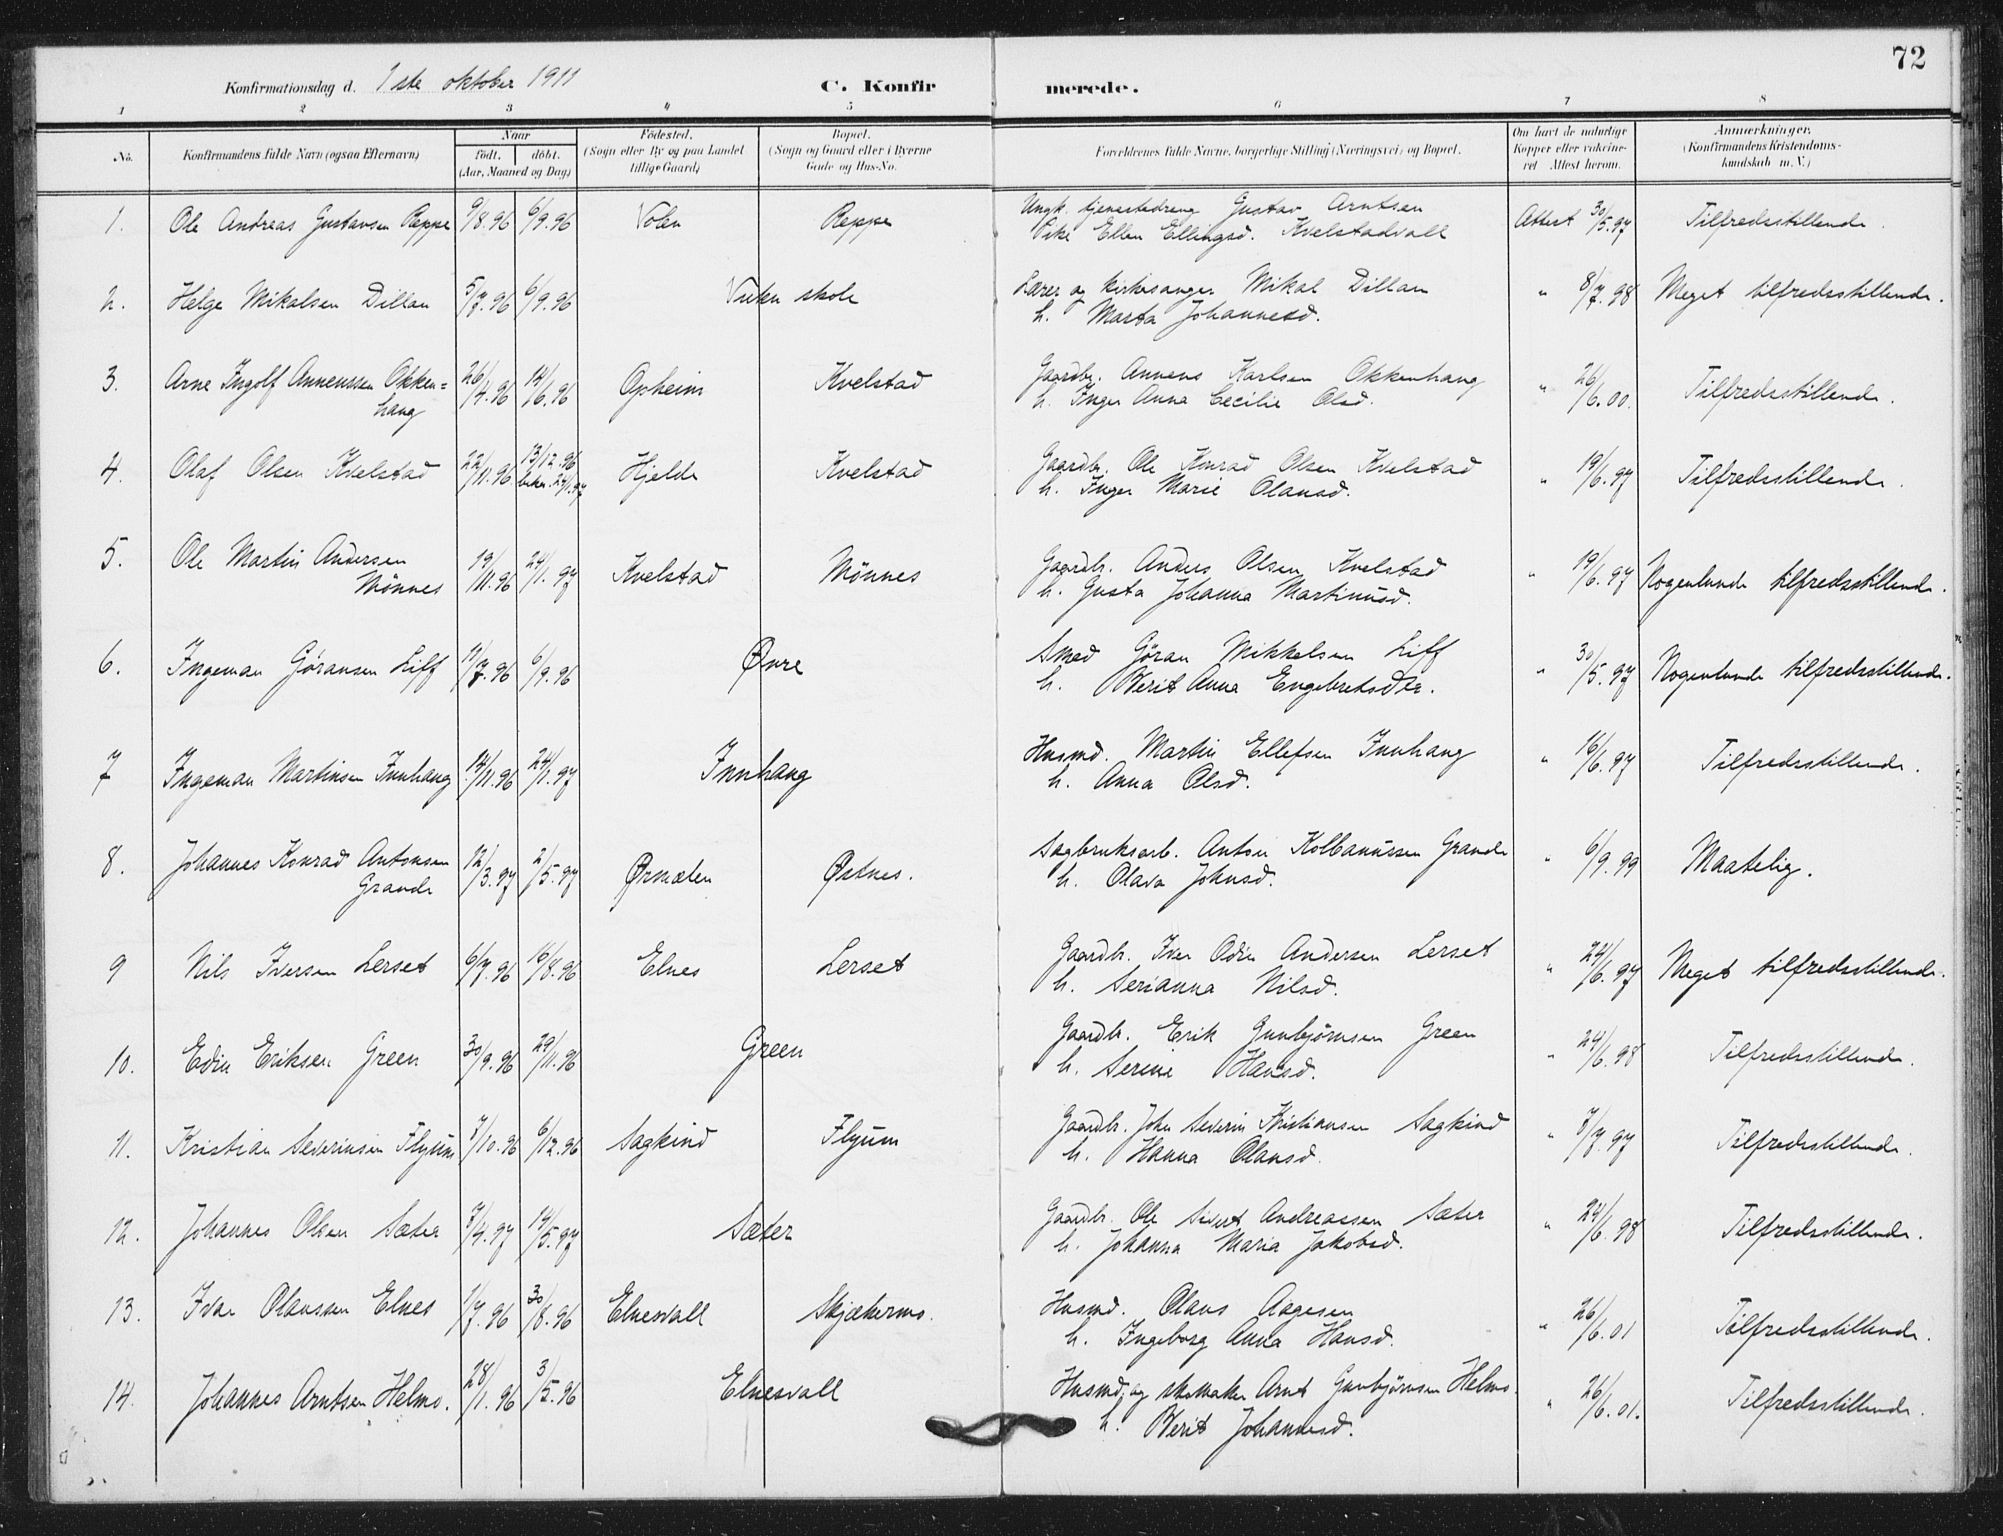 72
Konfirmationsdag d. 1ste oktober 1911 C. Konfirmerede.
1 2 3 4 5 6 7 8
No. Konfirmandens fulde Navn (ogsaa Efternavn) Naar födt. döbt. (Aar, Maaned og Dag) Födested. (Sogn eller By og paa Landet tillige Gaard) Bopæl. (Sogn og Gaard eller i Byerne Gade og Hus-No. Forældrenes fulde Navne, borgerlige Stilling (Næringsvei) og Bopæl. Om havt de naturlige Kopper eller vakcineret Attest herom. Anmærkninger. (Konfirmandens Kristendomskundskab m. V.)
1. Ole Andreas Gustavsen Reppe 9/8.96 6/9.96 Volen Reppe Ungk. tjenestedreng Gustav Arntsen Attest 30/5.97 Tilfredsstillende.
Pike Ellen Ellingsd. Kvelstadvall
2. Helge Mikalsen Dillan 5/7.96 6/9.96 Vuku skole Lærer og kirkesanger Mikal Dillan " 8/7.98 Meget tilfredsstillende.
h. Marta Johannesd.
3. Arne Ingolf Annæussen Okken= 26/4.96 14/6.96 Opheim Kvelstad Gaardbr. Annæus Karlsen Okkenhaug " 26/6.00. Tilfredsstillende.
haug h. Inger Anna Cecilie Olsd.
4. Olaf Olsen Kvelstad 22/11.96 13/12.96 Hjelde Kvelstad Gaardbr. Ole Konrad Olsen Kvelstad " 19/6.97 Tilfredsstillende.
bekr. 24/1.97 h. Inger Marie Olausd.
5. Ole Martin Andersen 19/11.96 24/1.97 Kvelstad Mönnes Gaardbr. Anders Olsen Kvelstad " 19/6.97 Nogenlunde tilfredsstillende.
Mönnes h. Gusta Johanna Martinusd.
6. Ingeman Gøransen Liff 11/7.96 6/9.96 Øvre Smed Gøran Mikkelsen Liff " 30/5.97 Nogenlunde tilfredsstillende.
h. Berit Anna Engebretsdtr.
7 Ingeman Martinsen Innhaug 14/11.96 24/1.97 Innhaug Husmd. Martin Ellefsen Innhaug " 16/6.97 Tilfredsstillende.
h. Anna Olsd.
8. Johannes Konrad Antonsen 12/3.97 2/5.97 Ørmælen Østnes. Sagbruksarb. Anton Kolbanussen Grande " 6/9.99 Maatelig.
Grande h. Olava Johnsd.
9 Nils Iversen Lerset 6/7.96 16/8.96 Elnes Lerset Gaardbr. Iver Odin Andersen Lerset " 24/6.97 Meget tilfredsstillende.
h. Serianna Nilsd.
10. Edin Eriksen Green 30/9.96 29/11.96 Green Gaardbr. Erik Gunbjørnsen Green " 24/6.98 Tilfredsstillende.
h. Serine Hansd.
11. Kristian Severinsen Flyum 7/10.96 6/12.96 Sagkind Flyum Gaardbr. John Severin Kristiansen Sagkind " 8/7.97 Tilfredsstillende.
h. Hanna Olausd.
12. Johannes Olsen Sæter 7/4.97 14/5.97 Sæter Gaardbr. Ole Sivert Andreassen Sæter " 24/6.98 Tilfredsstillende.
h. Johanna Maria Jakobsd.
13. Ivar Olaussen Elnes 1/7.96 30/8.96 Elnesvall Skjækermo. Husmd. Olaus Aagesen " 26/6.01 Tilfredsstillende.
h. Ingeborg Anna Hansd.
14. Johannes Arntsen Helmo. 28/1.96 3/5.96 Elnesvall Husmd. og skomaker Arnt Gunbjørnsen Helmo. " 26/6.01. Tilfredsstillende.
h. Berit Johannesd.